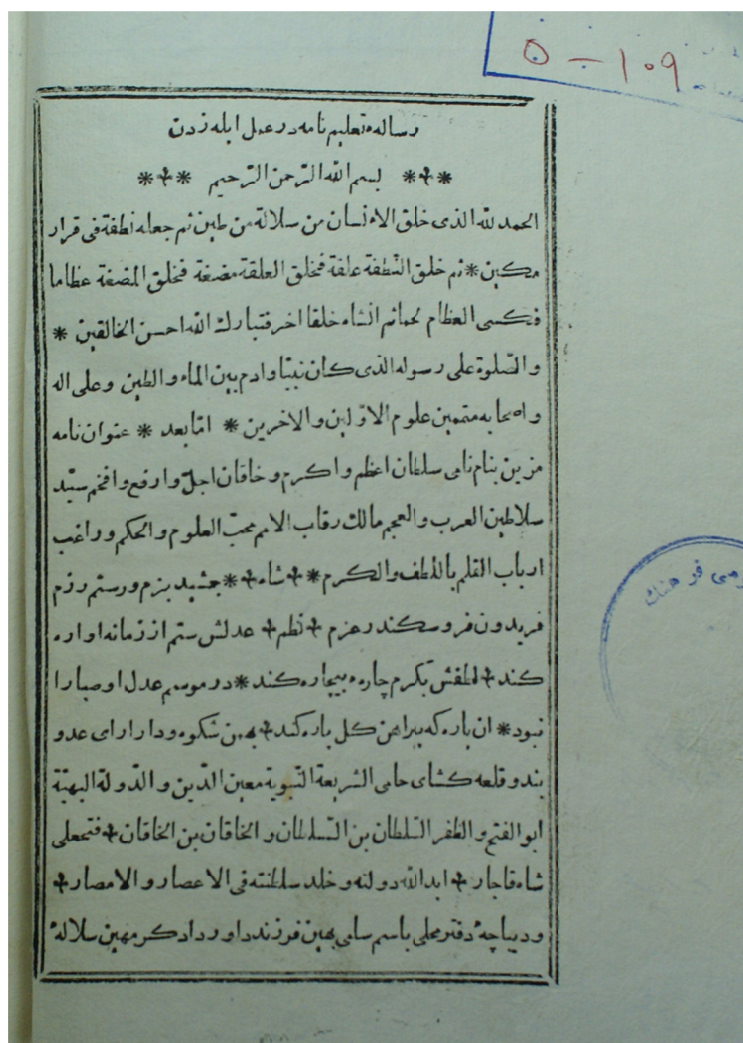 ۱۰۹ — ۵
رساله تعلیم نامه در عمل ابله زدن
بسم الله الرحمن الرحیم
الحمد لله الذی خلق الانسان من سلالة من طین ثم جعله نطفة فی قرار
مکین * ثم خلق النطفة علقة فخلق العلقة مضغة فخلق المضغة عظاما
فکسی العظام لحما ثم انشاه خلقا اخر فتبارك الله احسن الخالقین *
والصلوة علی رسوله الذی کان نبیّا وادم بین الماء والطین وعلی اله
واصحابه متممین علوم الاوّلین والاخرین * امّا بعد * عنوان نامه
مزین بنام نامی سلطان اعظم واکرم وخاقان اجلّ وارفع وافخم سیّد
سلاطین العرب والعجم مالك رقاب الامم محبّ العلوم والحکم وراغب
ارباب القلم باللّطف والکرم * شاه * جمشید بزم ورستم رزم
فریدون فر وسکندر عزم * نظم * عدلش ستم از زمانه اواره
کند * لطفش بکرم چاره بیچاره کند * در موسم عدل او صبا را
نبود * ان یاره که پیراهن کل پاره کند * بهمن شکوه ودارارای عدو
بند وقلعه کشای حامی الشریعة النّبویة معین الدّین والدّولة البهیّة
ابو الفتح والظفر السّلطان بن السّلطان والخاقان بن الخاقان * فتحعلی
شاه قاجار * ابد الله دولته وخلد سلطنته فی الاعصار والامصار *
ودیباچهٔ دفتر محلی باسم سامی بهین فرزند داور دادکر مهین سلالهٔ
فرهنك